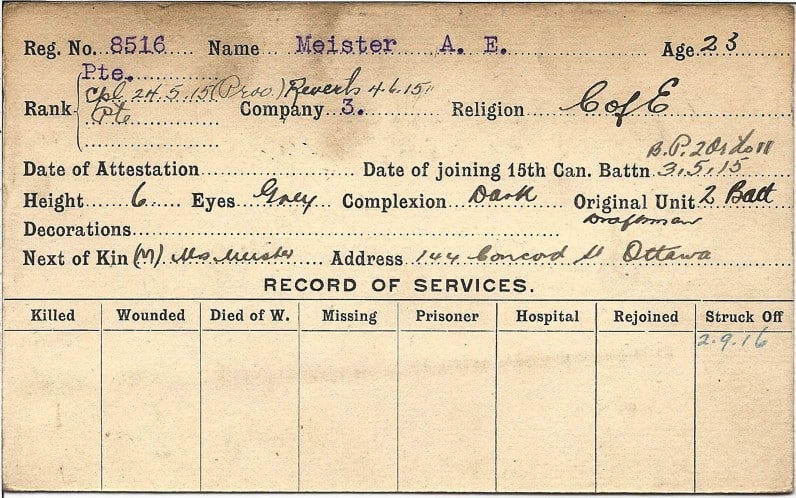 Reg. No. 8516 Name Meister A. E. Age 23
Pte.
Cpl 24.5.15 (Prov) Reverts 4.6.15
Rank Pte Company 3. Religion C of E
B.P. 2 Ords 11
Date of Attestation Date of joining 15th Can. Battn 3.5.15
Height 6 Eyes Grey Complexion Dark Original Unit 2 Batt
Decorations Draftsman
Next of Kin (M) Mrs Meister Address 144 Concord St Ottawa
RECORD OF SERVICES.
Killed Wounded Died of W. Missing Prisoner Hospital Rejoined Struck Off
2.9.16